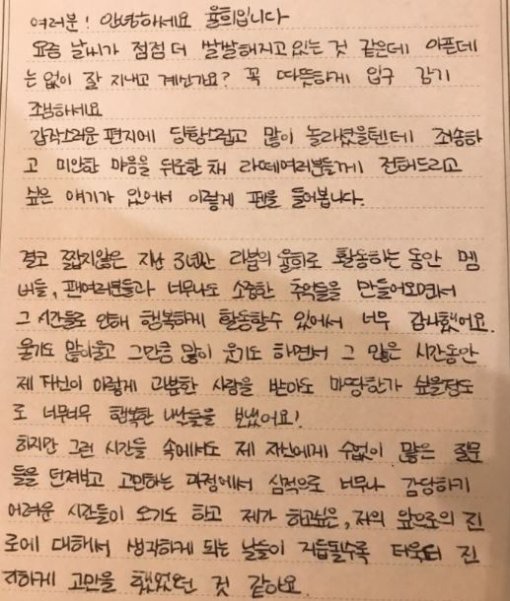 여러분! 안녕하세요 율희입니다
요즘 날씨가 점점 더 쌀쌀해지고 있는 것 같은데 아픈데
는 없이 잘 지내고 계신가요? 꼭 따뜻하게 입구 감기
조심하세요
갑작스러운 편지에 당황스럽고 많이 놀라셨을텐데 죄송하
고 미안한 마음을 뒤로한 채 라떼여러분들께 전해드리고
싶은 얘기가 있어서 이렇게 펜을 들어봅니다.
결코 짧지않은 지난 3년간 라붐의 율희로 활동하는 동안 멤
버들, 팬여러분들과 너무나도 소중한 추억들을 만들어오면서
그 시간들로 인해 행복하게 활동할수 있어서 너무 감사했어요.
울기도 많이울고 그만큼 많이 웃기도 하면서 그 많은 시간동안
제 자신이 이렇게 과분한 사랑을 받아도 마땅한가 싶을정도
로 너무너무 행복한 나날들을 보냈어요!
하지만 그런 시간들 속에서도 제 자신에게 수없이 많은 질문
들을 던져보고 고민하는 과정에서 심적으로 너무나 감당하기
어려운 시간들이 오기도 하고 제가 하고싶은, 저의 앞으로의 진
로에 대해서 생각하게 되는 날들이 거듭될수록 더욱더 진
지하게 고민을 했었던 것 같아요.